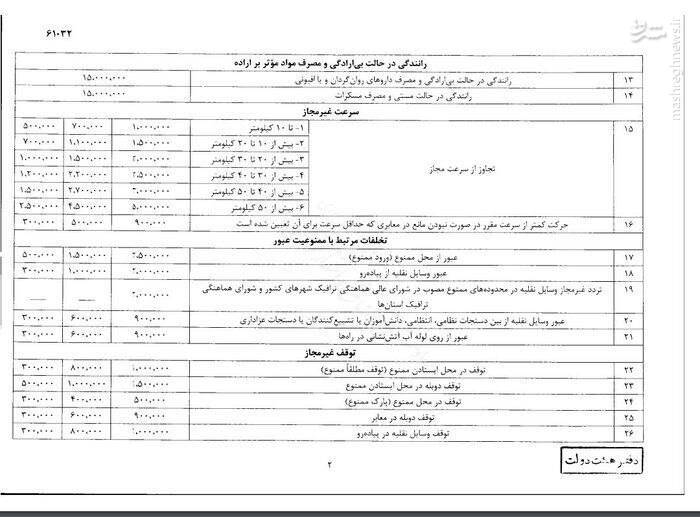 ۶۱۰۳۲
mashreghnews.ir
رانندگی در حالت بی‌ارادگی و مصرف مواد مؤثر بر اراده
۱۳ رانندگی در حالت بی‌ارادگی و مصرف داروهای روان‌گردان و یا افیونی ۱۵،۰۰۰،۰۰۰
۱۴ رانندگی در حالت مستی و مصرف مسکرات ۱۵،۰۰۰،۰۰۰
سرعت غیرمجاز
۱۵ تجاوز از سرعت مجاز ۱- تا ۱۰ کیلومتر ۱،۰۰۰،۰۰۰ ۷۰۰،۰۰۰ ۵۰۰،۰۰۰
۲- بیش از ۱۰ تا ۲۰ کیلومتر ۱،۵۰۰،۰۰۰ ۱،۱۰۰،۰۰۰ ۷۰۰،۰۰۰
۳- بیش از ۲۰ تا ۳۰ کیلومتر ۱،۵۰۰،۰۰۰ ۱،۰۰۰،۰۰۰
۴- بیش از ۳۰ تا ۴۰ کیلومتر ۲،۲۰۰،۰۰۰ ۱،۲۰۰،۰۰۰
۵- بیش از ۴۰ تا ۵۰ کیلومتر ۲،۷۰۰،۰۰۰ ۱،۵۰۰،۰۰۰
۶- بیش از ۵۰ کیلومتر ۵،۰۰۰،۰۰۰ ۴،۵۰۰،۰۰۰ ۲،۵۰۰،۰۰۰
۱۶ حرکت کمتر از سرعت مقرر در صورت نبودن مانع در معابری که حداقل سرعت برای آن تعیین شده است ۹۰۰،۰۰۰ ۵۰۰،۰۰۰ ۳۰۰،۰۰۰
تخلفات مرتبط با ممنوعیت عبور
۱۷ عبور از محل ممنوع (ورود ممنوع) ۱،۵۰۰،۰۰۰ ۵۰۰،۰۰۰
۱۸ عبور وسایل نقلیه از پیاده‌رو ۱،۰۰۰،۰۰۰ ۳۰۰،۰۰۰
۱۹ تردد غیرمجاز وسایل نقلیه در محدوده‌های ممنوع مصوب در شورای عالی هماهنگی ترافیک شهرهای کشور و شورای هماهنگی
ترافیک استان‌ها
۲۰ عبور وسایل نقلیه از بین دستجات نظامی، انتظامی، دانش‌آموزان یا تشییع‌کنندگان یا دستجات عزاداری ۹۰۰،۰۰۰ ۶۰۰،۰۰۰ ۳۰۰،۰۰۰
۲۱ عبور از روی لوله آب آتش‌نشانی در راه‌ها ۹۰۰،۰۰۰ ۶۰۰،۰۰۰ ۳۰۰،۰۰۰
توقف غیرمجاز
۲۲ توقف در محل ایستادن ممنوع (توقف مطلقاً ممنوع) ۸۰۰،۰۰۰ ۳۰۰،۰۰۰
۲۳ توقف دوبله در محل ایستادن ممنوع ۱،۰۰۰،۰۰۰ ۵۰۰،۰۰۰
۲۴ توقف در محل ممنوع (پارک ممنوع) ۵۰۰،۰۰۰ ۴۰۰،۰۰۰ ۳۰۰،۰۰۰
۲۵ توقف دوبله در معابر ۹۰۰،۰۰۰ ۶۰۰،۰۰۰ ۳۰۰،۰۰۰
۲۶ توقف وسایل نقلیه در پیاده‌رو ۸۰۰،۰۰۰ ۳۰۰،۰۰۰
۲
دفتر هیئت دولت